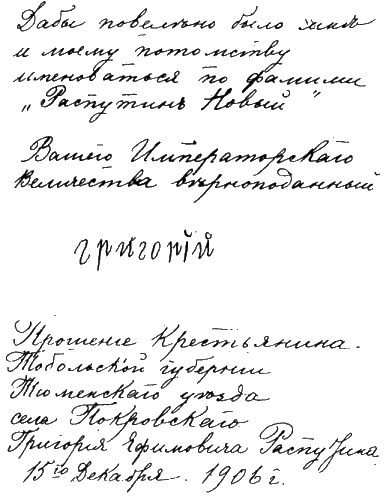 Дабы повелѣно было мнѣ
и моему потомству
именоваться по фамилии
„Распутинъ Новый”
Вашего Императорскаго
Величества вѣрноподанный
григорій
Прошение Крестьянина.
Тобольской губернии
Тюменскаго уѣзда
села Покровскаго
Григория Ефимовича Распутина
15го Декабря. 1906 г.